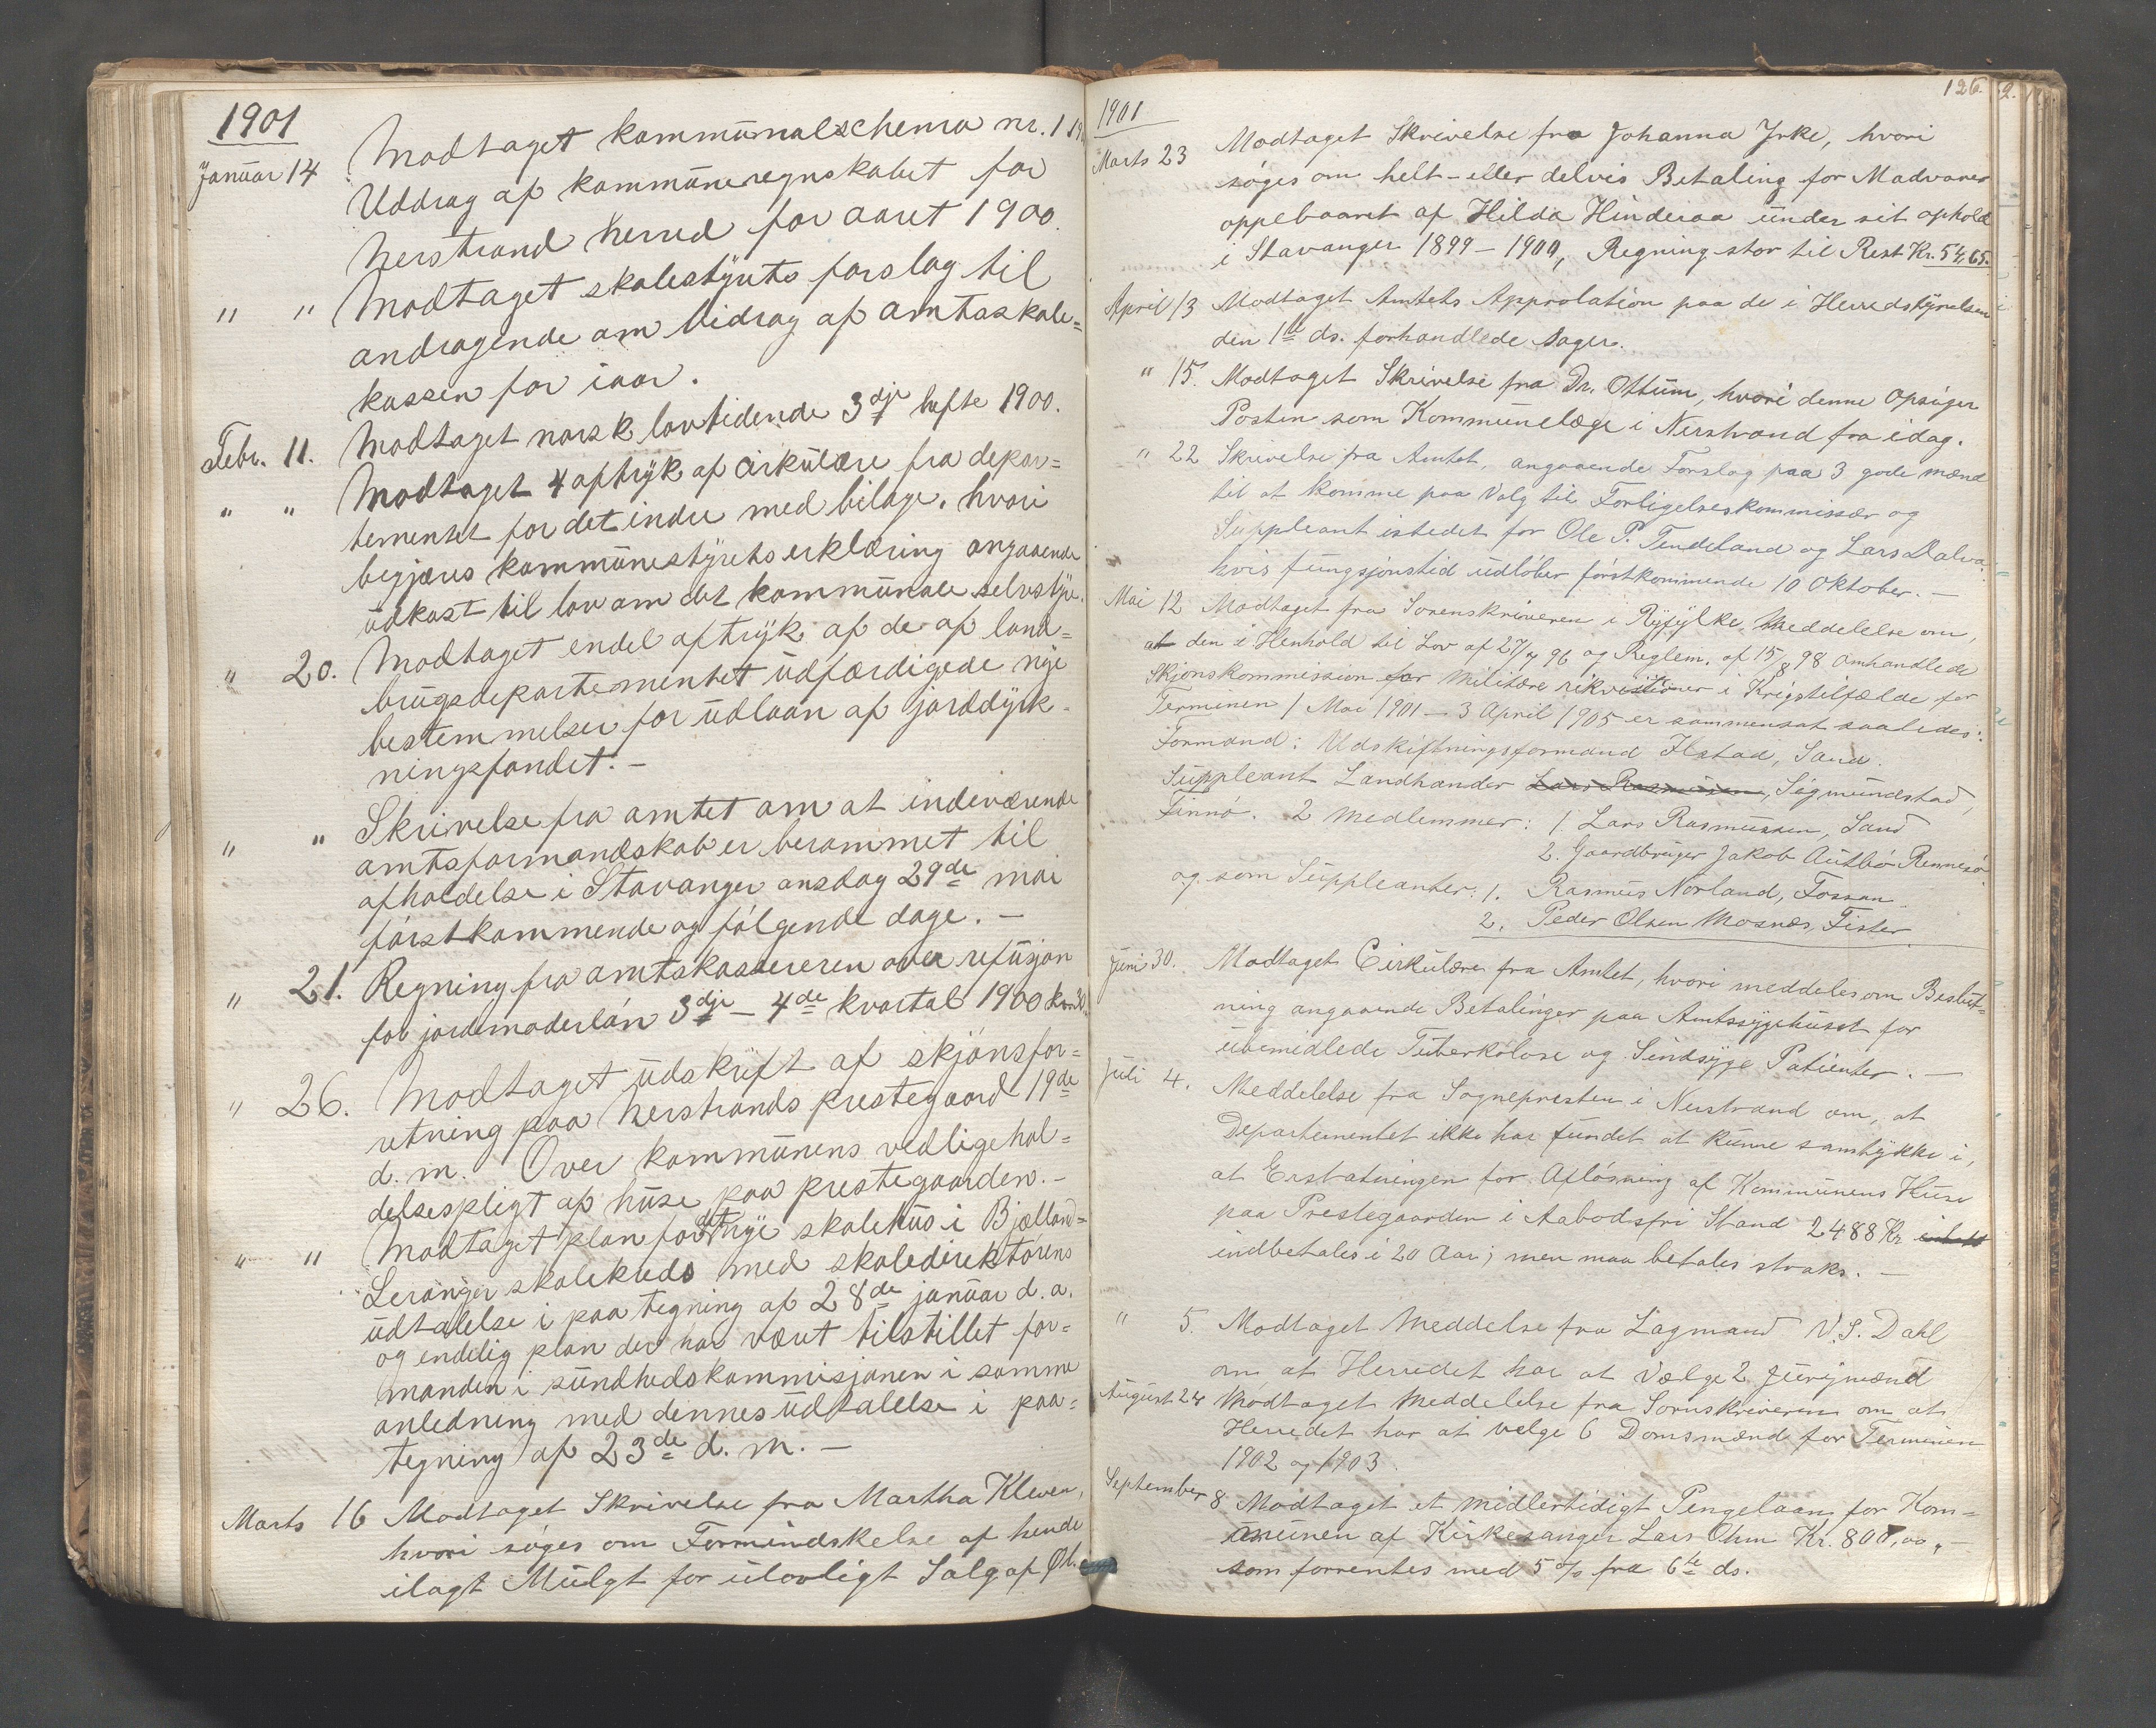 1901
Januar 14 Modtaget kommunalschema nr. 1
Uddrag af kommuneregnskabet for
Nerstrand herred for aaret 1900.
" " Modtaget skolestyrets forslag til
andragende om bidrag af amtsskole=
kassen for iaar.
Febr. 11. Modtaget norsk lovtidende 3dje hefte 1900.
" " Modtaget 4 aftryk af cirkulære fra depar=
tementet for det indre med bilage, hvori
begjæres kommunestyrets erklæring angaaende
udkast til lov om det kommunale selvstyre.
" 20. Modtaget endel aftryk af de af land=
brugsdepartementet udfærdigede nye
bestemmelser for udlaan af jorddyrk=
ningsfondet. -
" " Skrivelse fra amtet om at indeværende
amtsformandskab er berammet til
afholdelse i Stavanger onsdag 29de mai
førstkommende og følgende dage. -
" 21. Regning fra amtskassereren over refusjon
for jordemoderløn 3dje - 4de kvartal 1900
" 26. Modtaget udskrift af skjønsfor=
retning paa Nerstrands prestegaard 19de
d. m. Over kommunens vedligehol=
delsespligt af huse paa prestegaarden. -
" " Modtaget plan for nyt skolehus i Bjelland=
Leranger skolekreds med skoledirektørens
udtalelse i paategning af 28de januar d. a.
og endelig plan der har været tilstillet for=
manden i sundhedskommisjonen i samme
anledning med dennes udtalelse i paa=
tegning af 23de d. m. -
Marts 16 Modtaget Skrivelse fra Martha Kleven,
hvori søges om Formindskelse af hende
ilagt Mulgt for ulovligt Salg af Øl.
126
1901
Marts 23 Modtaget Skrivelse fra Johanna Yrke, hvori
søges om helt- eller delvis Betaling for Madvarer
oppebaaret af Hilda Hinderaa under sit ophold
i Stavanger 1899 - 1900, Regning stor til Rest Kr. 54,65.
April 13 Modtaget Amtets Approbation paa de i Herredstyrelsen
den 1ste ds. forhandlede Sager.
" 15. Modtaget Skrivelse fra Dr. Ottum, hvori denne opsiger
Posten som Kommunelæge i Nerstrand fra idag.
" 22 Skrivelse fra Amtet, angaaende Forslag paa 3 gode mænd
til at komme paa Valg til Forligelseskommissær og
Suppleant istedet for Ole P. Tendeland og Lars Dalva
hvis fungsjonstid udløber førstkommende 10 Oktober. -
Mai 12 Modtaget fra Sorenskriveren i Ryfylke, Meddelelse om,
at den i Henhold til Lov af 27/7 96 og Reglem. af 15/8 98 omhandlede
Skjønskommission for Militære rikvisitioner i Krigstilfælde for
Terminen 1 Mai 1901 - 3 April 1905 er sammensat saaledes:
Formand: Udskiftningsformand Ilstad, Sand.
Suppleant Landhandler Lars Rasmussen, Sigmundstad,
Finnø. 2 Medlemmer: 1. Lars Rasmussen, Sand
2. Gaardbruger Jakob Austbø Rennesø
og som Suppleanter: 1. Rasmus Norland, Fossan.
2. Peder Olsen Mosnes, Fister
Juni 30. Modtaget Cirkulære fra Amtet, hvori meddeles om Beslut=
ning angaaende Betalinger paa Amtssygehuset for
ubemidlede Tuberkøløse og Sindsyge Patienter. -
Juli 4. Meddelelse fra Sognepresten i Nerstrand om, at
Departementet ikke har fundet at kunne samtykke i,
at Erstatningen for Afløsning af Kommunens Huse
paa Prestegaarden i Aabodsfri Stand 2488 Kr
indbetales i 20 Aar; men maa betales straks. -
" 5. Modtaget Meddelse fra Lagmand V. S. Dahl
om at Herredet har at Vælge 2 Jurymænd
August 24 Modtaget Meddelelse fra Sornskriveren om at
Herredet har at velge 6 Domsmænd for Terminen
1902 og 1903.
September 8 Modtaget et midlertidigt Pengelaan for Kom=
munen af Kirkesanger Lars Ohm Kr. 800,00 -
som forrentes med 5 % fra 6te ds.